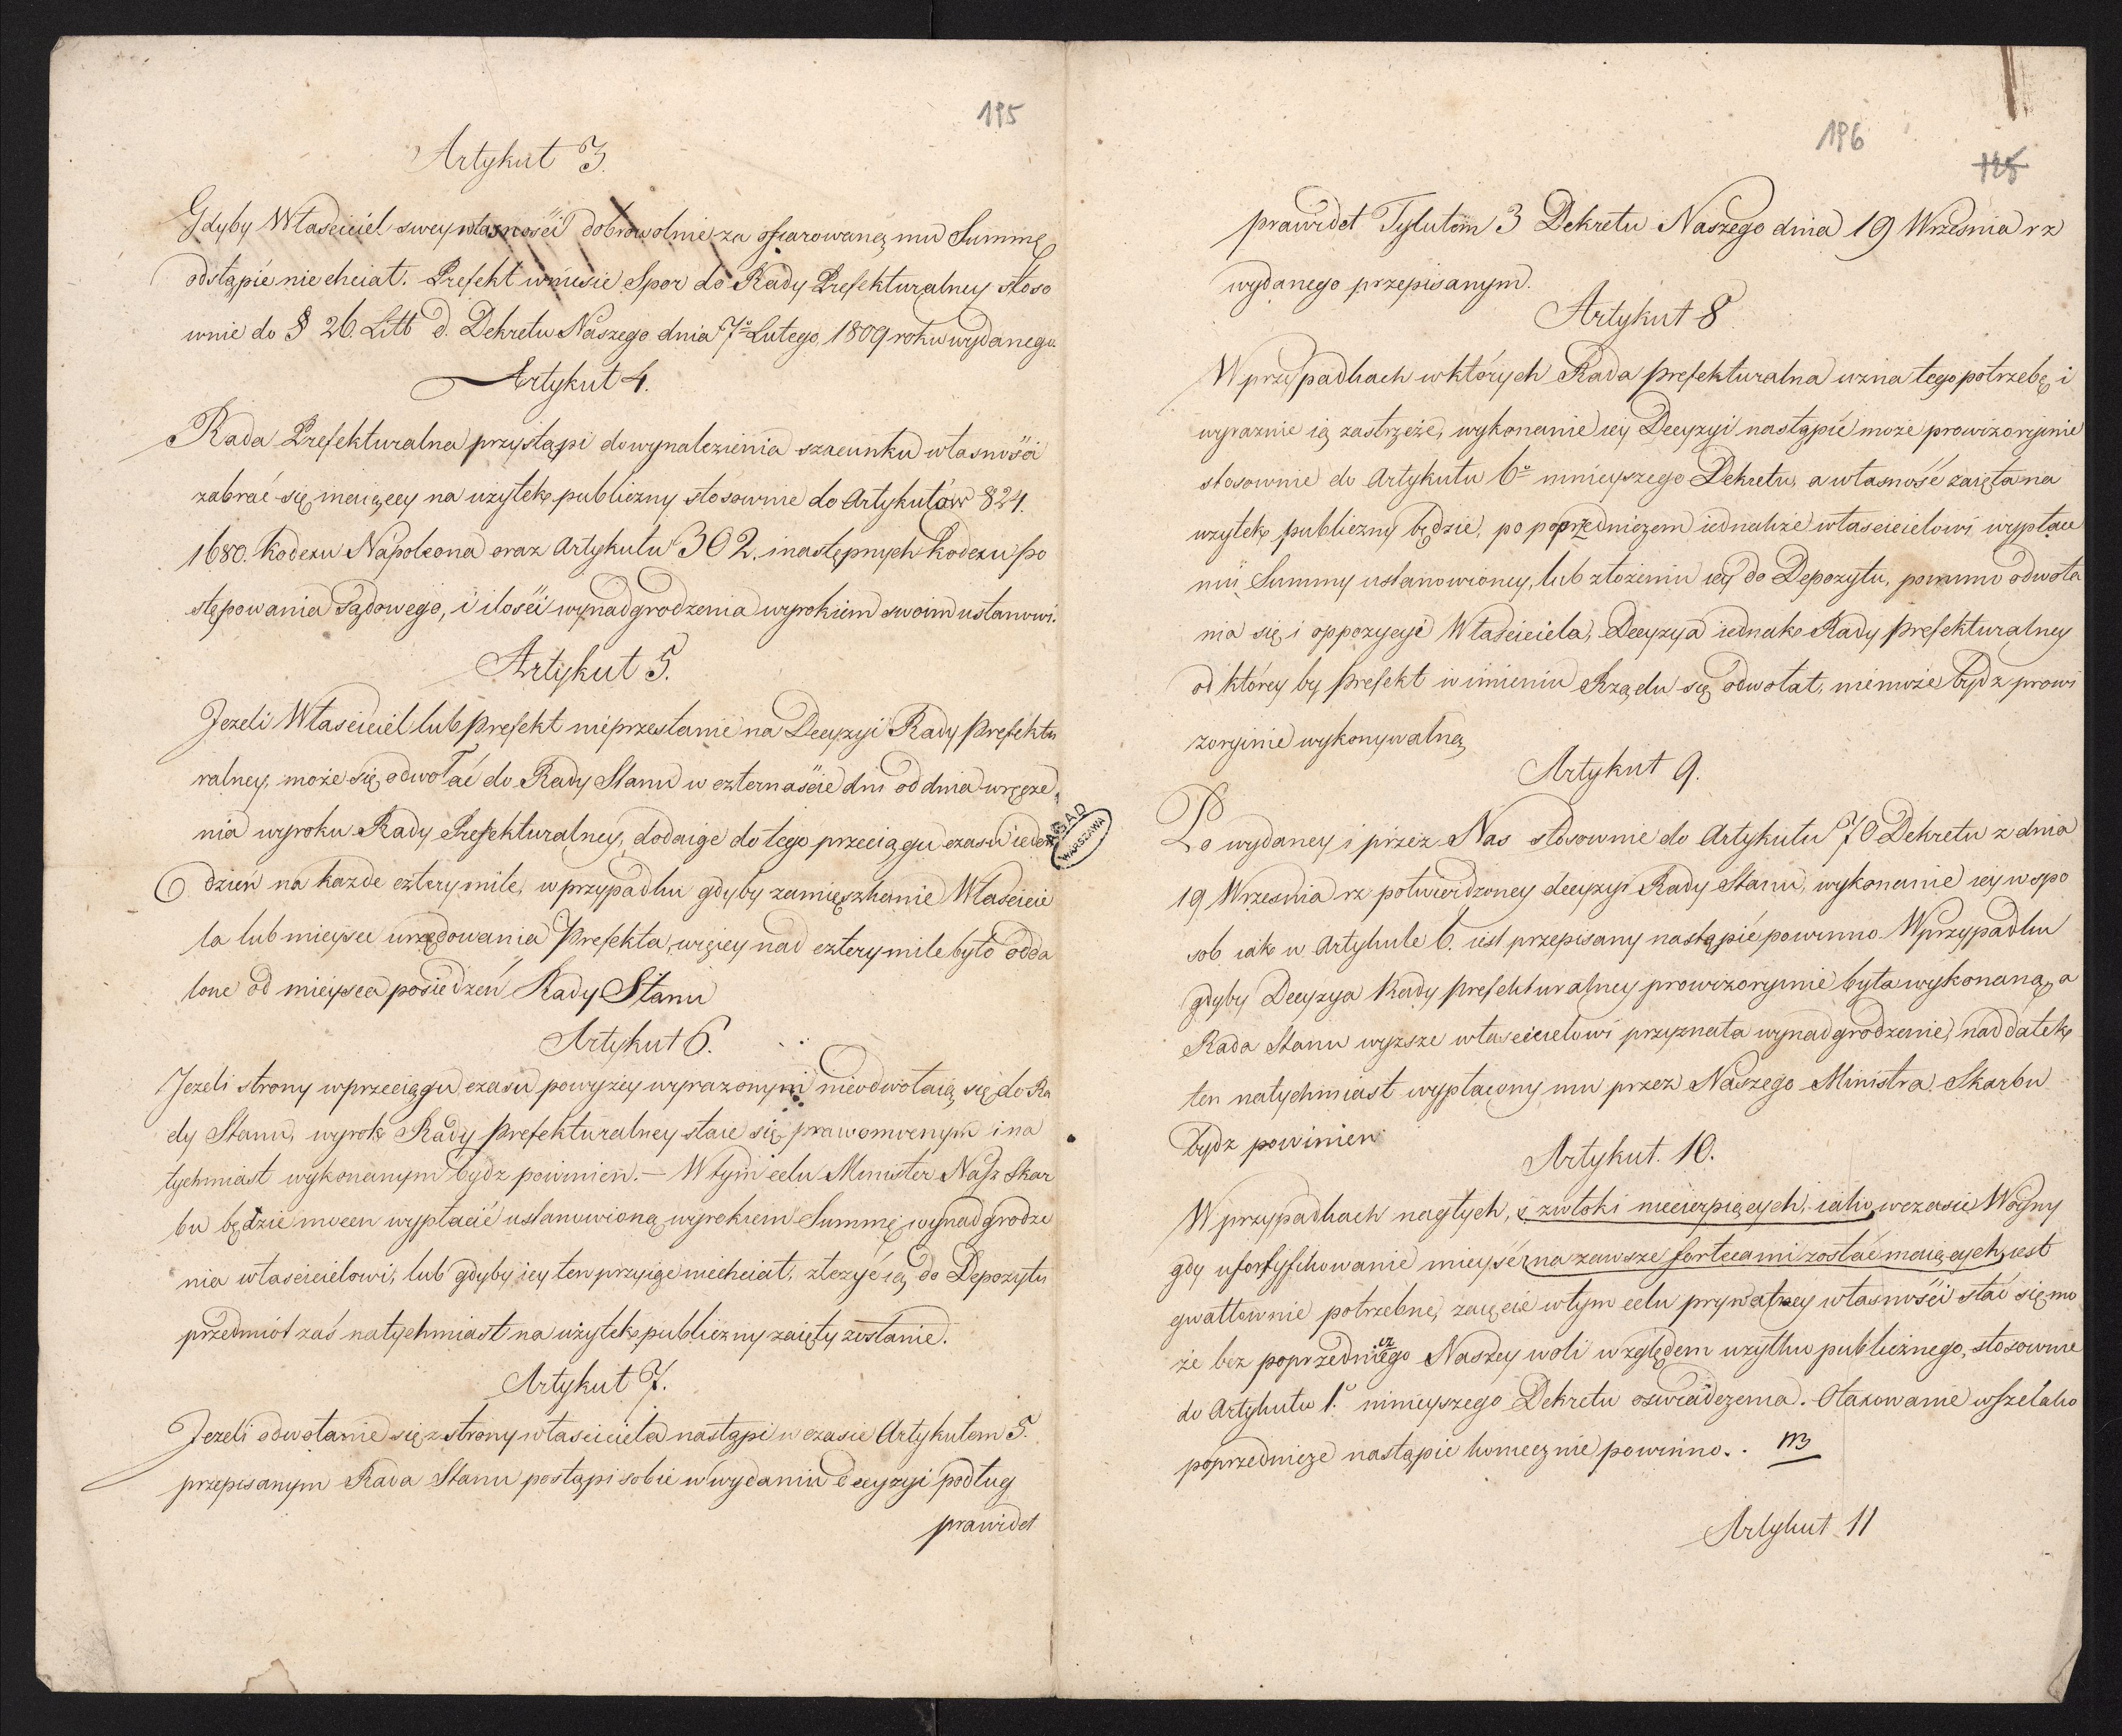 195
Artykuł 3.
Gdyby Właściciel swey własności dobrowolnie za ofiarowaną mu Summę
odstąpić nie chciał. Prefekt wniesie Spor do Rady Prefekturalney stoso
wnie do § 26. Litt d. Dekretu Naszego dnia 7º Lutego 1809 roku wydanego
Artykuł 4.
Rada Prefekturalna przystąpi do wynalezienia szacunku własności
zabrać się maiącey na użytek publiczny stosownie do Artykułów 824.
1680. Kodexu Napoleona oraz Artykułu 302. i następnych Kodexu po
stępowania Sądowego, i ilości wynadgrodzenia wyrokiem swoim ustanowi.
Artykuł 5.
Jeżeli Właściciel lub Prefekt nieprzestanie na Decyzyi Rady Prefektu
ralney, może się odwołać do Rady Stanu w czternaście dni od dnia wręcze
nia wyroku Rady Prefekturalney, dodaiąc do tego przeciągu czasu ieden
dzień na każde cztery mile, w przypadku gdyby zamieszkanie Właścicie
la lub mieysce urzędowania Prefekta, więcey nad cztery mile było odda
lone od mieysca posiedzeń Rady Stanu
Artykuł 6.
Jeżeli strony w przeciągu czasu powyżey wyrażonym nieodwołaią się do Ra
dy Stanu, wyrok Rady Prefekturalney staie się prawomocnym i na
tychmiast wykonanym bydz powinien. — W tym celu Minister Nasz Skar
bu będzie mocen wypłacić ustanowioną wyrokiem Summę wynadgrodze
nia właścicielowi, lub gdyby iey ten przyiąc niechciał, złożyć ią do Depozytu
przedmiot zaś natychmiast na użytek publiczny zaięty zostanie.
Artykuł 7.
Jeżeli odwołanie się z strony właściciela nastąpi w czasie Artykułem 5.
przepisanym Rada Stanu postąpi sobie w wydaniu decyzyi podług
prawideł
AGAD
WARSZAWA
196
125
prawideł Tytułem 3 Dekretu Naszego dnia 19 Września rz
wydanego przepisanym.
Artykuł 8
W przypadkach w których Rada Prefekturalna uzna tego potrzebę i
wyraznie ią zastrzeże, wykonanie iey Decyzyi nastąpić może prowizoryinie
stosownie do Artykułu 6º ninieyszego Dekretu, a własność zaięta na
uzytek publiczny będzie, po poprzedniczem iednakże właścicielowi wypłace
niu Summy ustanowioney, lub złożeniu iey do Depozytu, pomimo odwoła
nia się i oppozycyi Właściciela, Decyzya iednak Rady Prefekturalney
od którey by Prefekt w imieniu Rządu się odwołał, niemoże bydz prowi
zoryinie wykonywalną
Artykuł 9.
Po wydaney i przez Nas stosownie do Artykułu 70 Dekretu z dnia
19 Września rz potwierdzoney decyzyi Rady Stanu, wykonanie iey w spo
sob iak w Artykule 6. iest przepisany nastąpić powinno. W przypadku
gdyby Decyzya Rady Prefekturalney prowizoryinie była wykonaną, a
Rada Stanu wyższe właścicielowi przyznała wynadgrodzenie, naddatek
ten natychmiast wypłacony mu przez Naszego Ministra Skarbu
bydz powinien
Artykuł. 10.
W przypadkach nagłych, i zwłoki niecierpiących, iako w czasie Woyny
gdy ufortyfikowanie mieysc na zawsze fortecami zostać maiących, iest
gwałtownie potrzebne, zaięcie w tym celu prywatney własności stać się mo
że bez poprzedniczego Naszey woli względem użytku publicznego, stosownie
do Artykułu 1.º ninieyszego Dekretu oswiadczenia. Otaxowanie wszelako
poprzednicze nastąpić koniecznie powinno..
Artykuł 11